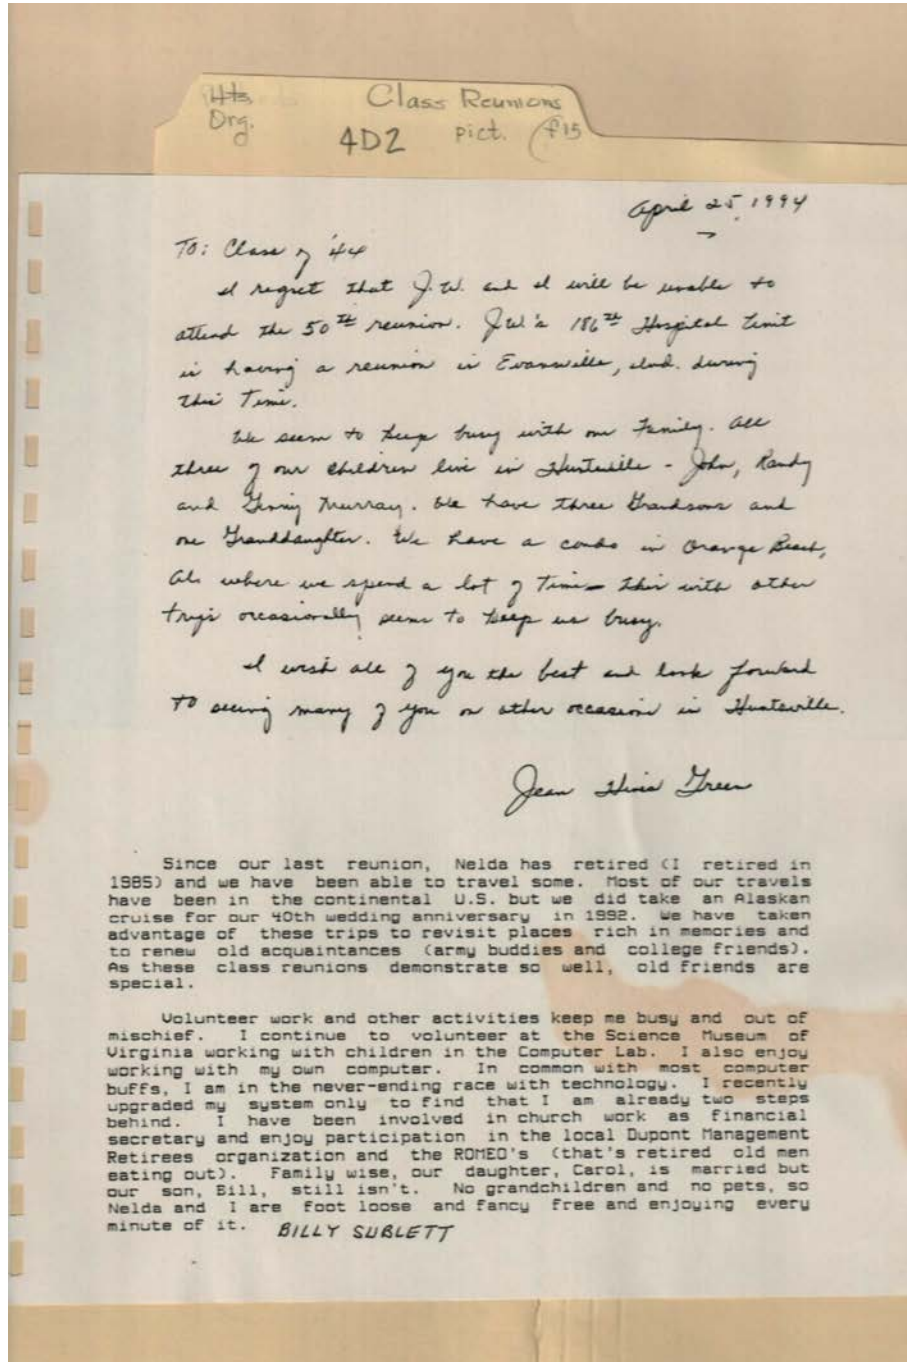 Hts.
Class Reunions
Org.
4D2 pict. f15
April 25, 1994
TO: Class of '44
I regret that J.W. and I will be unable to
attend the 50th reunion. J.W.'s 186th Hospital Unit
is having a reunion in Evansville, Ind. during
this time.
We seem to keep busy with our family. All
three of our children live in Huntsville - John, Randy
and Ginny Murray. We have three Grandsons and
one Granddaughter. We have a condo in Orange Beach,
Al. where we spend a lot of time - this with other
tryp's occasionally seems to keep us busy.
I wish all of you the best and look forward
to seeing many of you on other occasions in Huntsville.
Jean Green
Since our last reunion, Nelda has retired (I retired in
1985) and we have been able to travel some. Most of our travels
have been in the continental U.S. but we did take an Alaskan
cruise for our 40th wedding anniversary in 1992. We have taken
advantage of these trips to revisit places rich in memories and
to renew old acquaintances (army buddies and college friends).
As these class reunions demonstrate so well, old friends are
special.
Volunteer work and other activities keep me busy and out of
mischief. I continue to volunteer at the Science Museum of
Virginia working with children in the Computer Lab. I also enjoy
working with my own computer. In common with most computer
buffs, I am in the never-ending race with technology. I recently
upgraded my system only to find that I am already two steps
behind. I have been involved in church work as financial
secretary and enjoy participation in the local Dupont Management
Retirees organization and the ROMEO's (that's retired old men
eating out). Family wise, our daughter, Carol, is married but
our son, Bill, still isn't. No grandchildren and no pets, so
Nelda and I are foot loose and fancy free and enjoying every
minute of it. BILLY SUBLETT